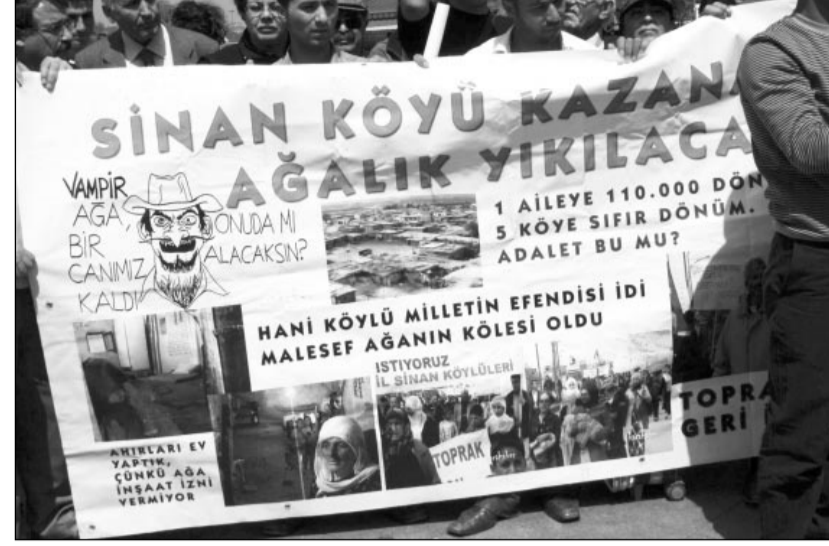 SİNAN KÖYÜ KAZANA
AĞALIK YIKILACA
VAMPİR
AĞA,
BİR
CANIMIZ
KALDI
ONUDA MI
ALACAKSIN?
1 AİLEYE 110.000 DÖN
5 KÖYE SIFIR DÖNÜM.
ADALET BU MU?
HANİ KÖYLÜ MİLLETİN EFENDİSİ İDİ
MALESEF AĞANIN KÖLESİ OLDU
İSTİYORUZ
İL SİNAN KÖYLÜLERİ
TOPRAK
TOPRA
GERİ
AHIRLARI EV
YAPTIK,
ÇÜNKÜ AĞA
İNŞAAT İZNİ
VERMİYOR